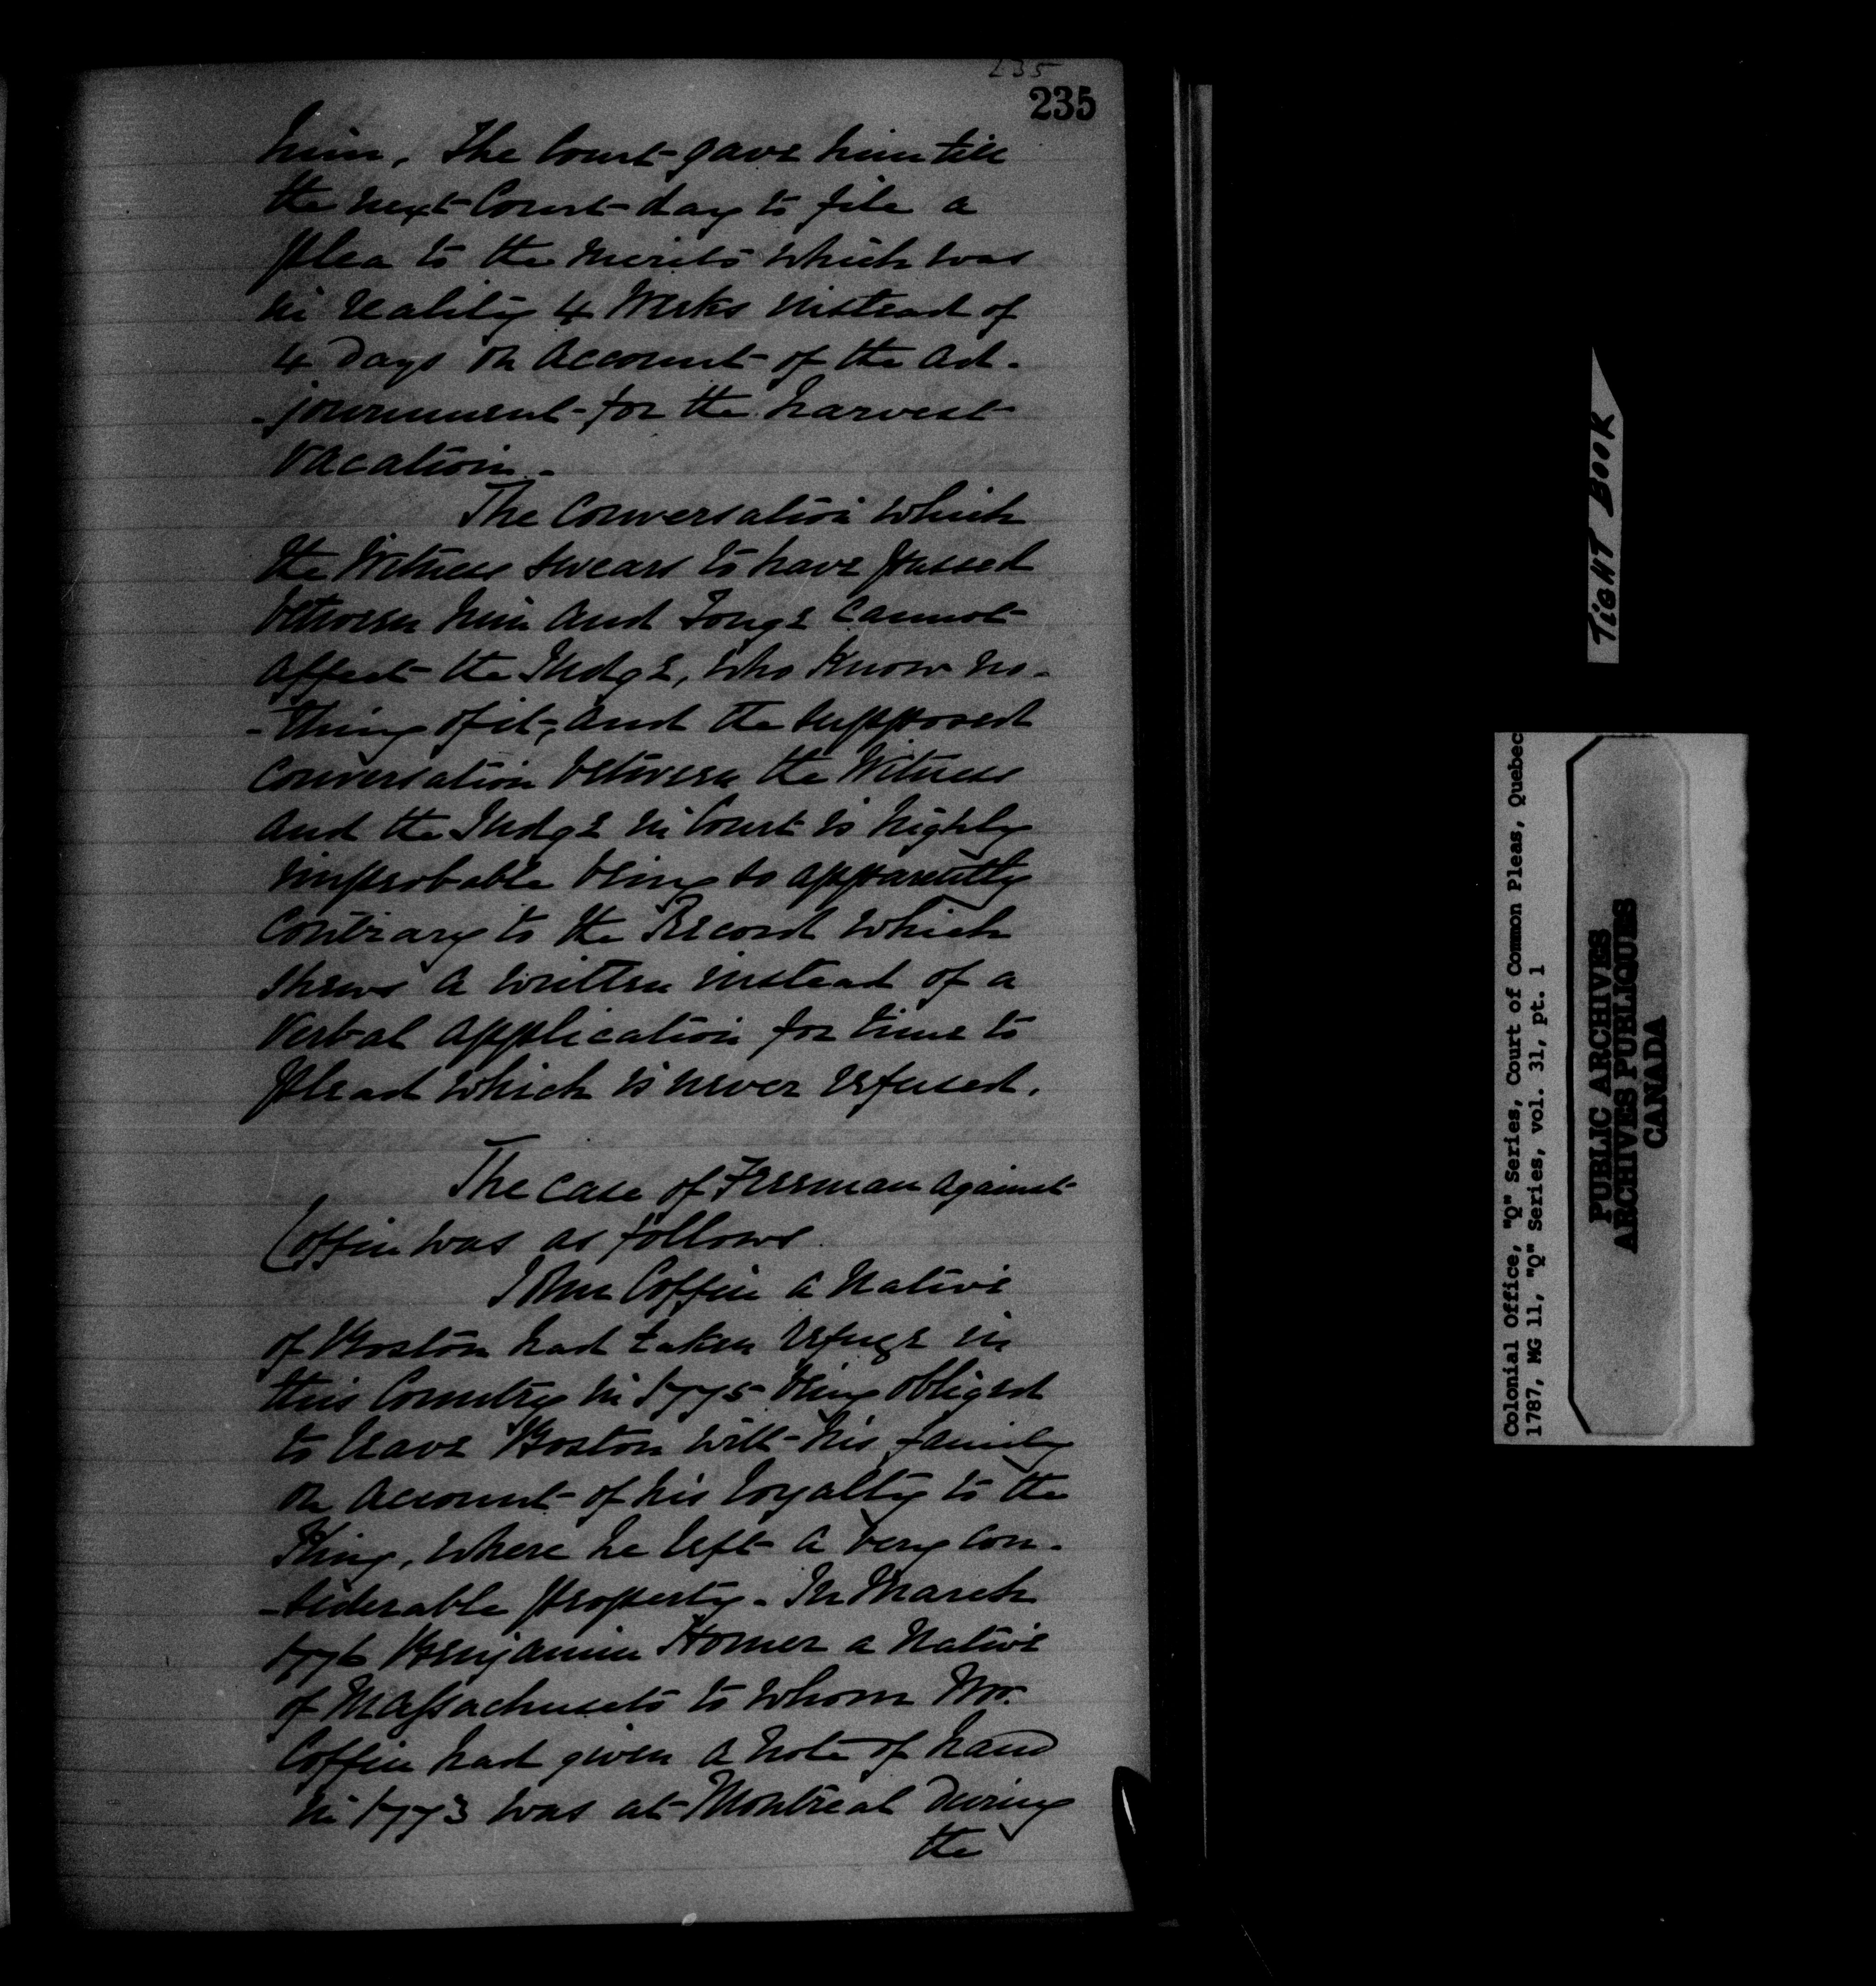 235
235
him. The Court gave him till
the next Court day to file a
plea to the merits which was
in reality 4 Weeks instead of
4 Days on account of the ad-
-journment for the harvest
vacation.-
The Conversation which
the Witness swears to have passed
between him and Tonge cannot
affect the Judge, who know no-
-thing of it, and the supposed
conversation between the Witness
and the Judge in Court is highly
improbable being so apparently
contrary to the Record which
shews a written instead of a
verbal application for time to
plead which is never refused.
The case of Freeman against
Coffin was as follows
John Coffin a native
of Boston had taken refuge in
this Country in 1775 being obliged
to leave Boston with his family
on account of his loyalty to the
King, where he left a very con-
-siderable property. In March
1776 Benjamin Homer a native
of Massachusets to whom Mr.
Coffin had given a note of hand
in 1773 was at Montreal during
the
TIGHT BOOK
Colonial Office, "Q" Series, Court of Common Pleas, Quebec
1787, MG 11, "Q" Series, vol. 31, pt. 1
PUBLIC ARCHIVES
ARCHIVES PUBLIQUES
CANADA